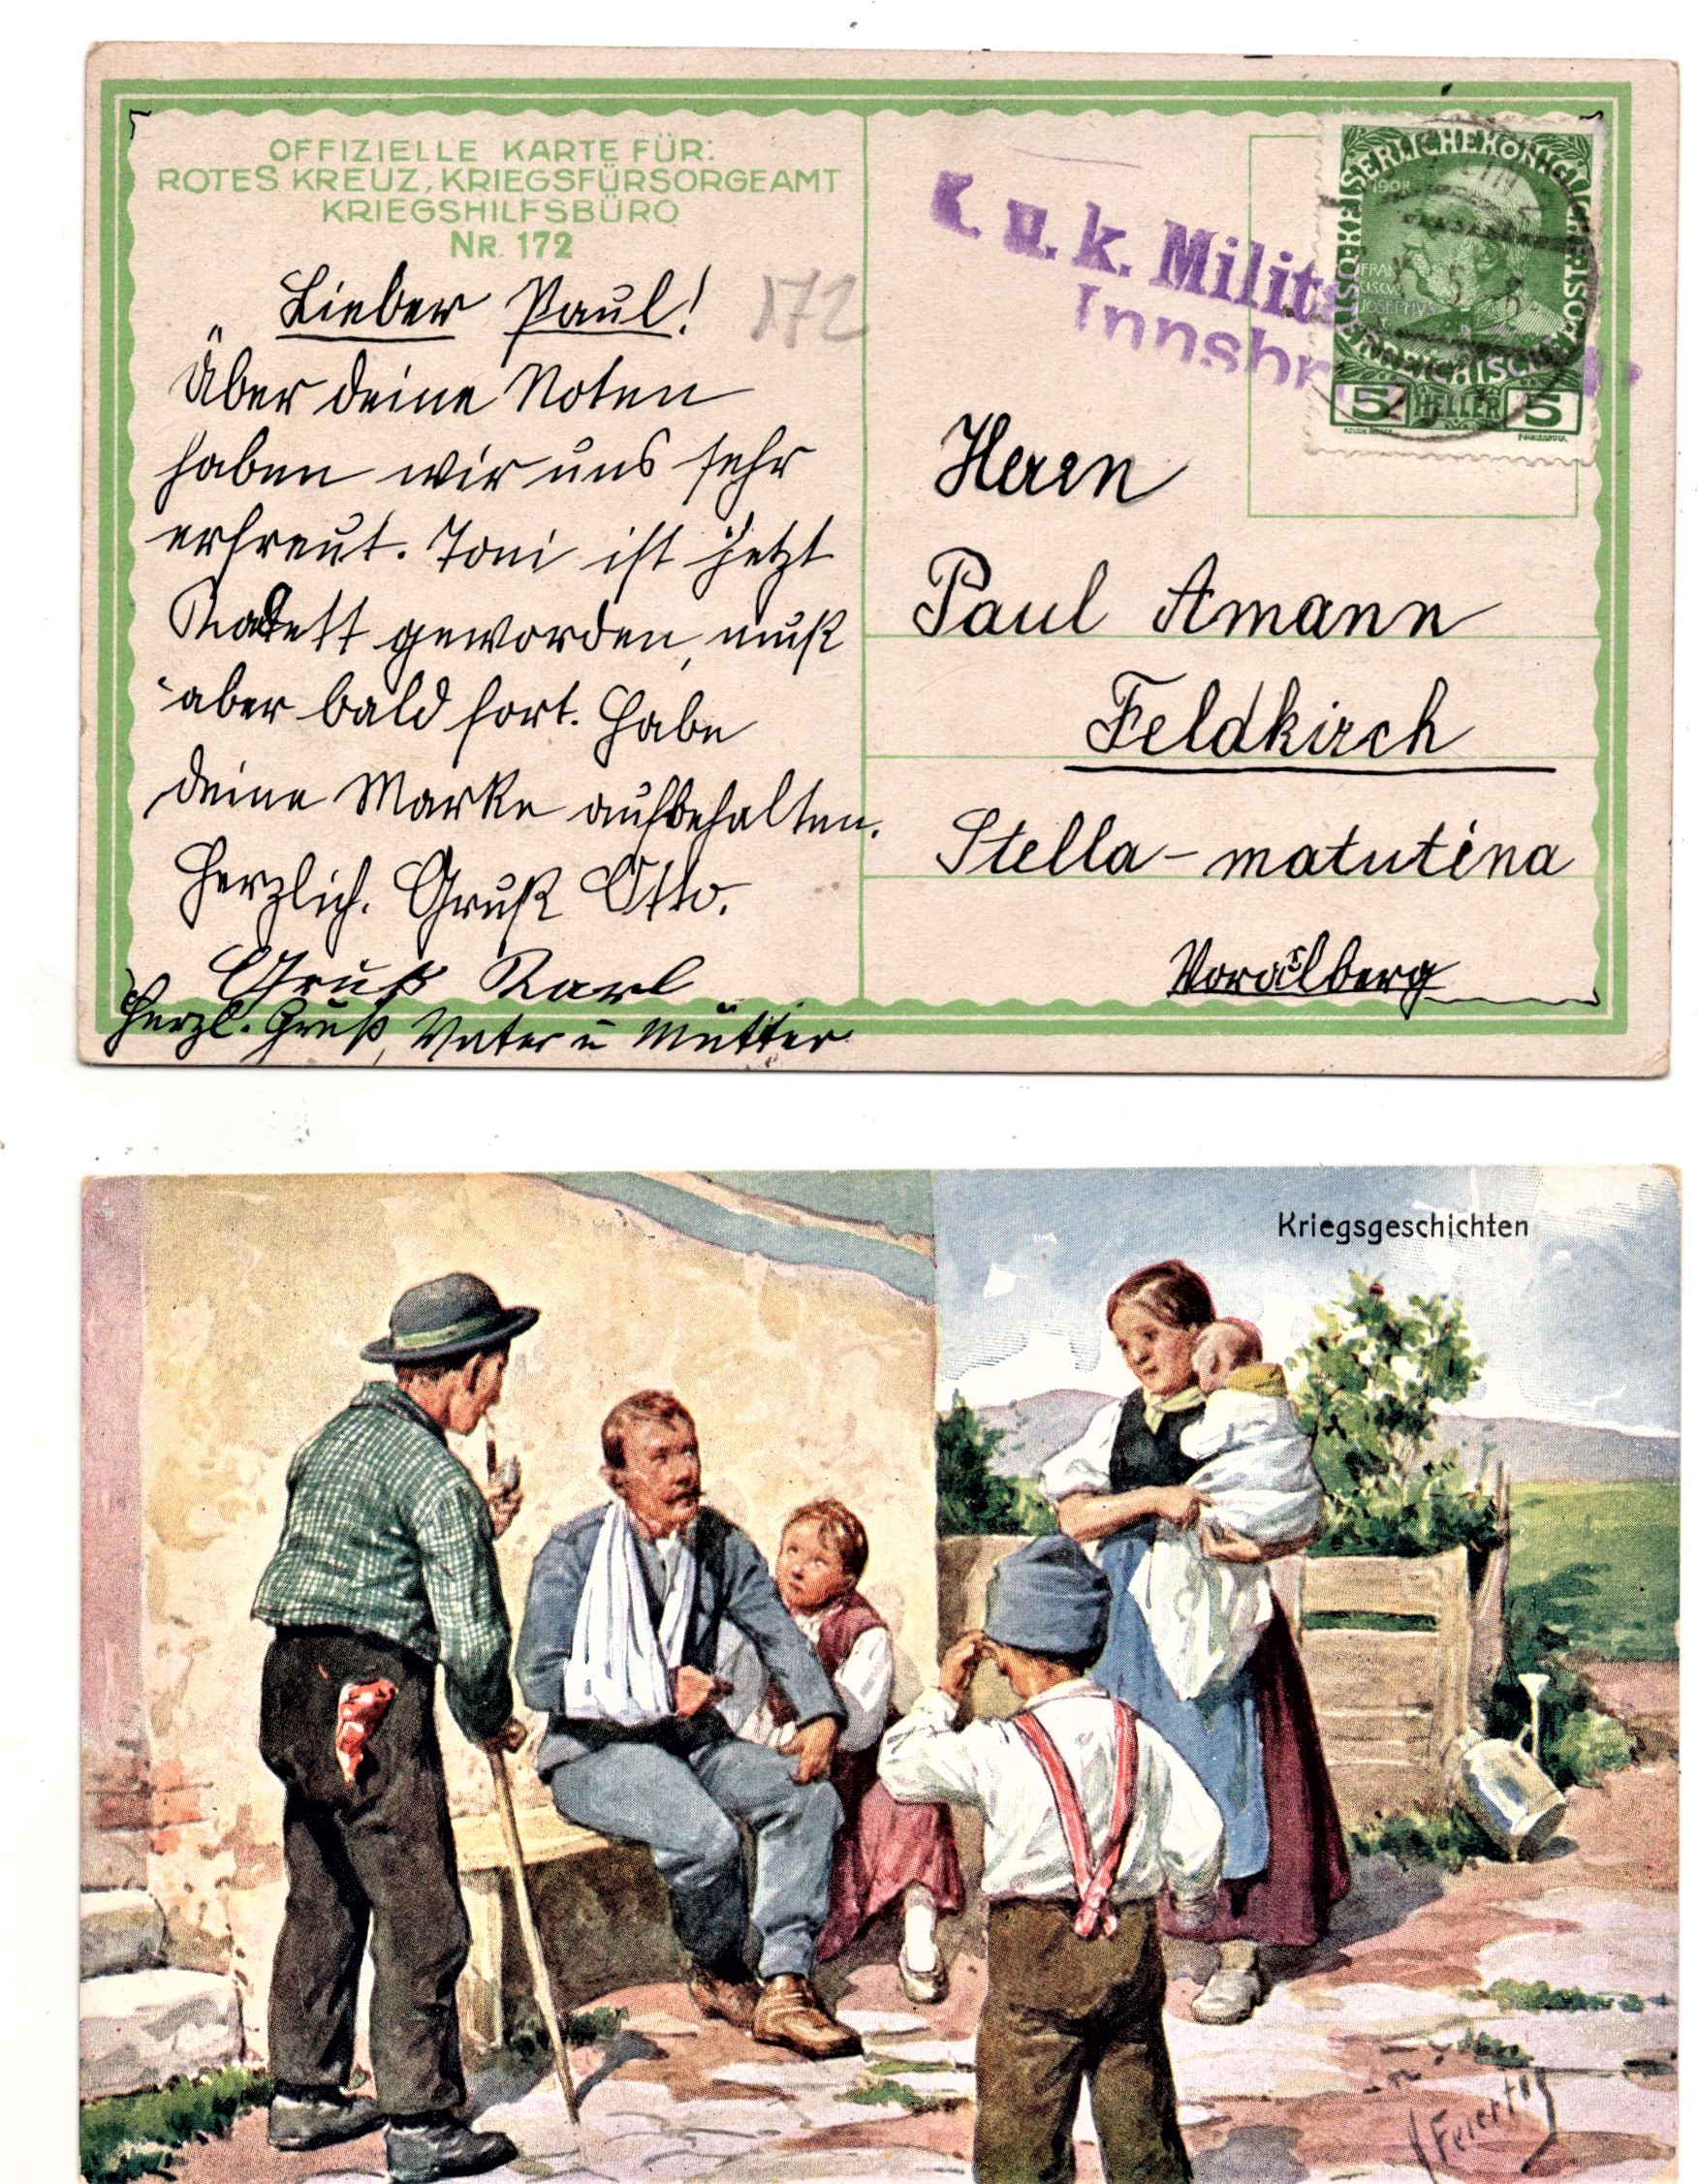 OFFIZIELLE KARTE FÜR:
ROTES KREUZ, KRIEGSFÜRSORGEAMT
KRIEGSHILFSBÜRO
NR. 172
172
Lieber Paul!
Über deine Noten
haben wir uns sehr
erfreut. Toni ist jetzt
Kadett geworden, muß
aber bald fort. Habe
deine Marke aufbehalten.
Herzlich. Gruß Otto.
Gruß Karl
Herzl. Gruß, Vater u Mutter
K. u. k. Milit
Innsbr
1908
5 HELLER 5
Herrn
Paul Amann
Feldkirch
Stella-matutina
Vorarlberg
Kriegsgeschichten
Feiertag